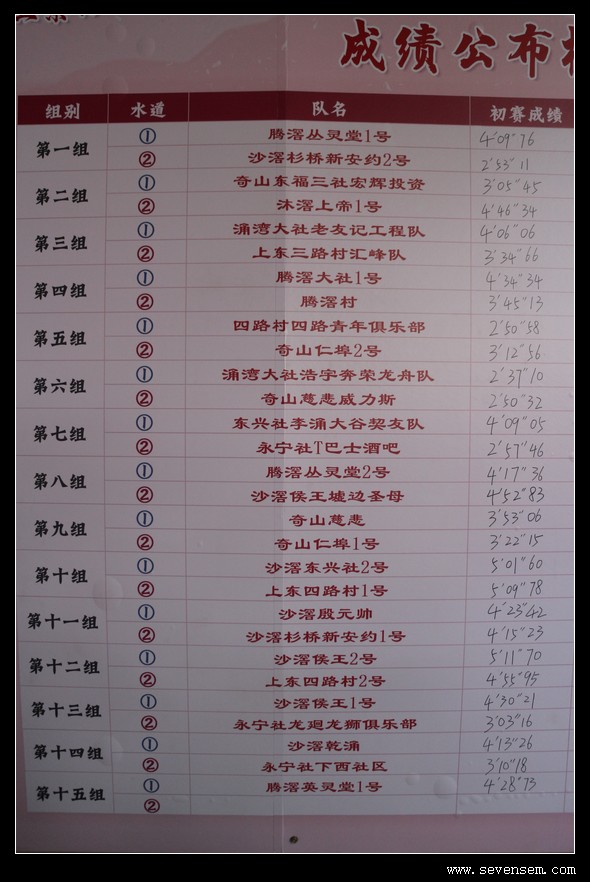 成绩公布
组别 水道 队名 初赛成绩
第一组 ① 腾滘丛灵堂1号 4'09"76
② 沙滘杉桥新安约2号 2'53"11
第二组 ① 奇山东福三社宏辉投资 3'05"45
② 沐滘上帝1号 4'46"34
第三组 ① 涌湾大社老友记工程队 4'06"06
② 上东三路村汇峰队 3'34"66
第四组 ① 腾滘大社1号 4'34"34
② 腾滘村 3'45"13
第五组 ① 四路村四路青年俱乐部 2'50"58
② 奇山仁埠2号 3'12"56
第六组 ① 涌湾大社浩宇奔荣龙舟队 2'37"10
② 奇山慈悲威力斯 2'50"32
第七组 ① 东兴社李涌大谷契友队 4'09"05
② 永宁社T巴士酒吧 2'57"46
第八组 ① 腾滘丛灵堂2号 4'17"36
② 沙滘侯王墟边圣母 4'52"83
第九组 ① 奇山慈悲 3'53"06
② 奇山仁埠1号 3'22"15
第十组 ① 沙滘东兴社2号 5'01"60
② 上东四路村1号 5'09"78
第十一组 ① 沙滘殷元帅 4'23"42
② 沙滘杉桥新安约1号 4'15"23
第十二组 ① 沙滘侯王2号 5'11"70
② 上东四路村2号 4'55"95
第十三组 ① 沙滘侯王1号 4'30"21
② 永宁社龙廻龙狮俱乐部 3'03"16
第十四组 ① 沙滘乾涌 4'13"26
② 永宁社下西社区 3'10"18
第十五组 ① 腾滘英灵堂1号 4'28"73
②
www.sevensem.com